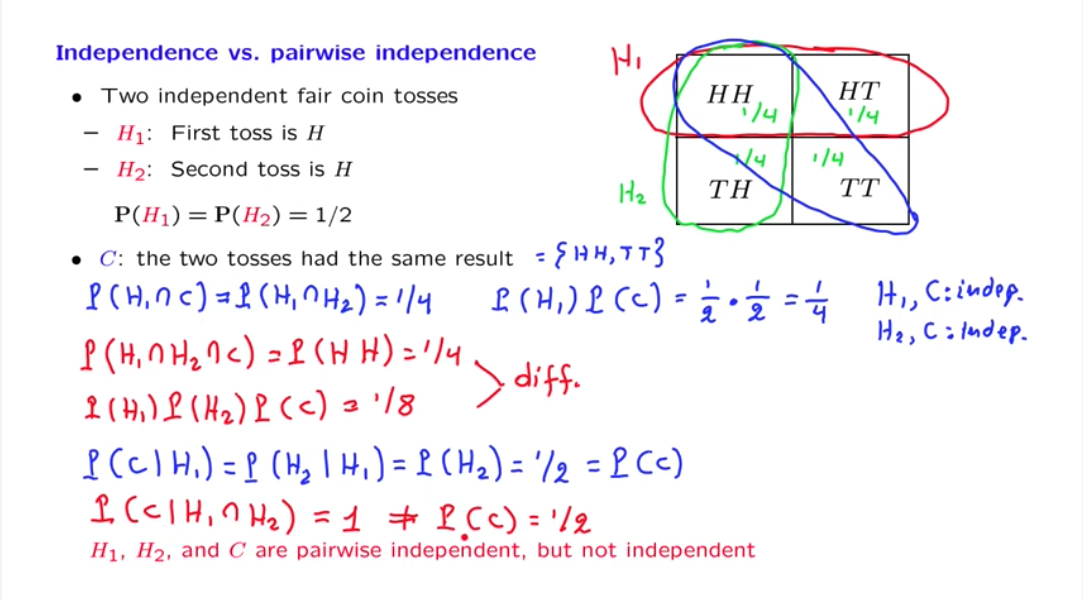 Independence vs. pairwise independence
• Two independent fair coin tosses
– H₁: First toss is H
– H₂: Second toss is H
P(H₁) = P(H₂) = 1/2
H₁
HH 1/4
HT 1/4
H₂
TH 1/4
TT 1/4
• C: the two tosses had the same result = {HH, TT}
P(H₁∩C) = P(H₁∩H₂) = 1/4 P(H₁)P(C) = 1/2 · 1/2 = 1/4 H₁, C: indep.
H₂, C: indep.
P(H₁∩H₂∩C) = P(HH) = 1/4
diff.
P(H₁)P(H₂)P(C) = 1/8
P(C|H₁) = P(H₂|H₁) = P(H₂) = 1/2 = P(C)
P(C|H₁∩H₂) = 1 ≠ P(C) = 1/2
H₁, H₂, and C are pairwise independent, but not independent